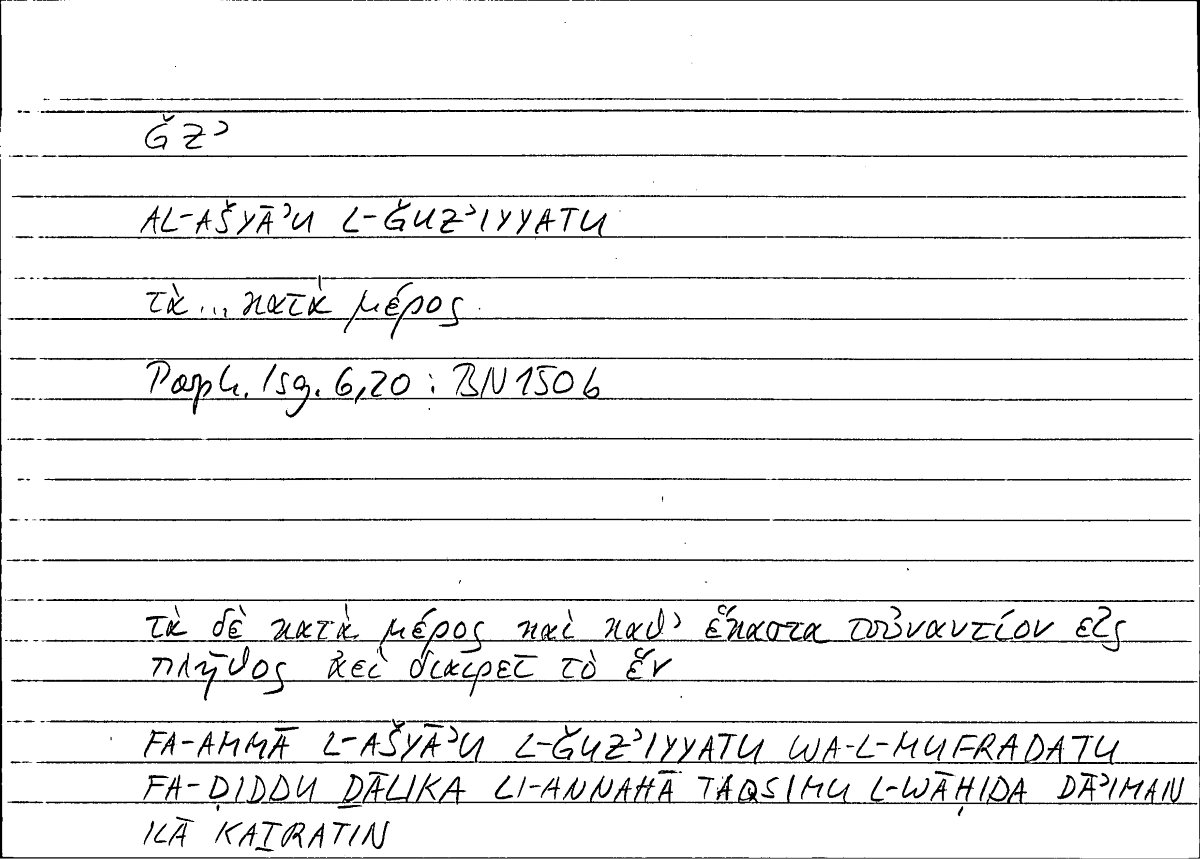 ǦZʾ
AL-AŠYĀʾU L-ǦUZʾIYYATU
τὰ ... κατὰ μέρος
Porph. Isg. 6,20 : BN 150 b
τὰ δὲ κατὰ μέρος καὶ καθʾ ἕκαστα τοὐναντίον εἰς
πλῆθος ἀεὶ διαιρεῖ τὸ ἕν
FA-AMMĀ L-AŠYĀʾU L-ǦUZʾIYYATU WA-L-MUFRADATU
FA-ḌIDDU ḎĀLIKA LI-ANNAHĀ TAQSIMU L-WĀḤIDA DĀʾIMAN
ILĀ KAṮRATIN